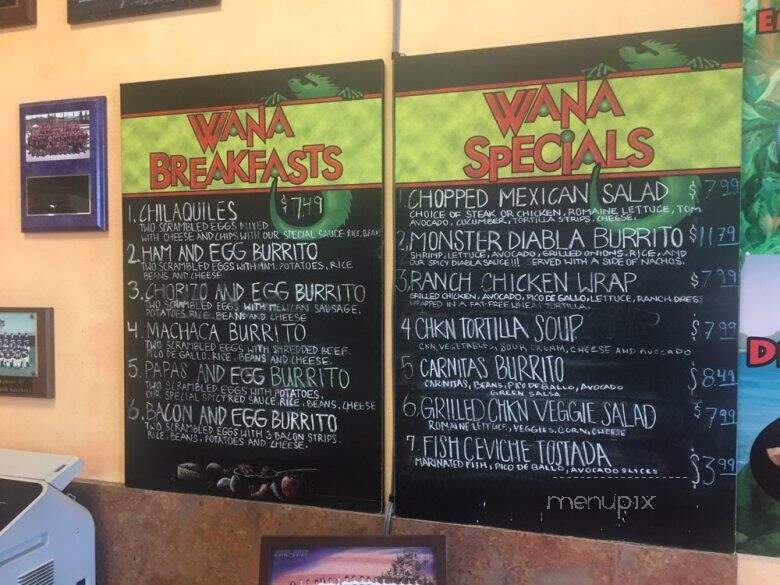 WANA
BREAKFASTS
1. CHILAQUILES $7.49
TWO SCRAMBLED EGGS MIXED
WITH CHEESE AND CHIPS WITH OUR SPECIAL SAUCE RICE, BEAN
2. HAM AND EGG BURRITO
TWO SCRAMBLED EGGS WITH HAM, POTATOES, RICE
BEANS AND CHEESE
3. CHORIZO AND EGG BURRITO
TWO SCRAMBLED EGGS WITH MEXICAN SAUSAGE,
POTATOES, RICE, BEANS AND CHEESE
4. MACHACA BURRITO
TWO SCRAMBLED EGGS WITH SHREDDED BEEF,
PICO DE GALLO, RICE, BEANS AND CHEESE.
5. PAPAS AND EGG BURRITO
TWO SCRAMBLED EGGS WITH POTATOES,
OUR SPECIAL SPICY RED SAUCE, RICE, BEANS, CHEESE
6. BACON AND EGG BURRITO
TWO SCRAMBLED EGGS WITH 3 BACON STRIPS,
RICE, BEANS, POTATOES AND CHEESE.
WANA
SPECIALS
1. CHOPPED MEXICAN SALAD $7.99
CHOICE OF STEAK OR CHICKEN, ROMAINE LETTUCE, TOM
AVOCADO, CUCUMBER, TORTILLA STRIPS, CHEESE.
2. MONSTER DIABLA BURRITO $11.79
SHRIMP, LETTUCE, AVOCADO, GRILLED ONIONS, RICE, AND
OUR SPICY DIABLA SAUCE!!! SERVED WITH A SIDE OF NACHOS.
3. RANCH CHICKEN WRAP $7.99
GRILLED CHICKEN, AVOCADO, PICO DE GALLO, LETTUCE, RANCH DRESS
WRAPPED IN A FAT-FREE WHEAT TORTILLA.
4 CHKN TORTILLA SOUP $7.99
CKN, VEGETABLES, SOUR CREAM, CHEESE AND AVOCADO
5 CARNITAS BURRITO $8.49
CARNITAS, BEANS, PICO DE GALLO, AVOCADO
GREEN SALSA
6. GRILLED CHKN VEGGIE SALAD $7.99
ROMAINE LETTUCE, VEGGIES, CORN, CHEESE
7. FISH CEVICHE TOSTADA $3.99
MARINATED FISH, PICO DE GALLO, AVOCADO SLICES
menupix